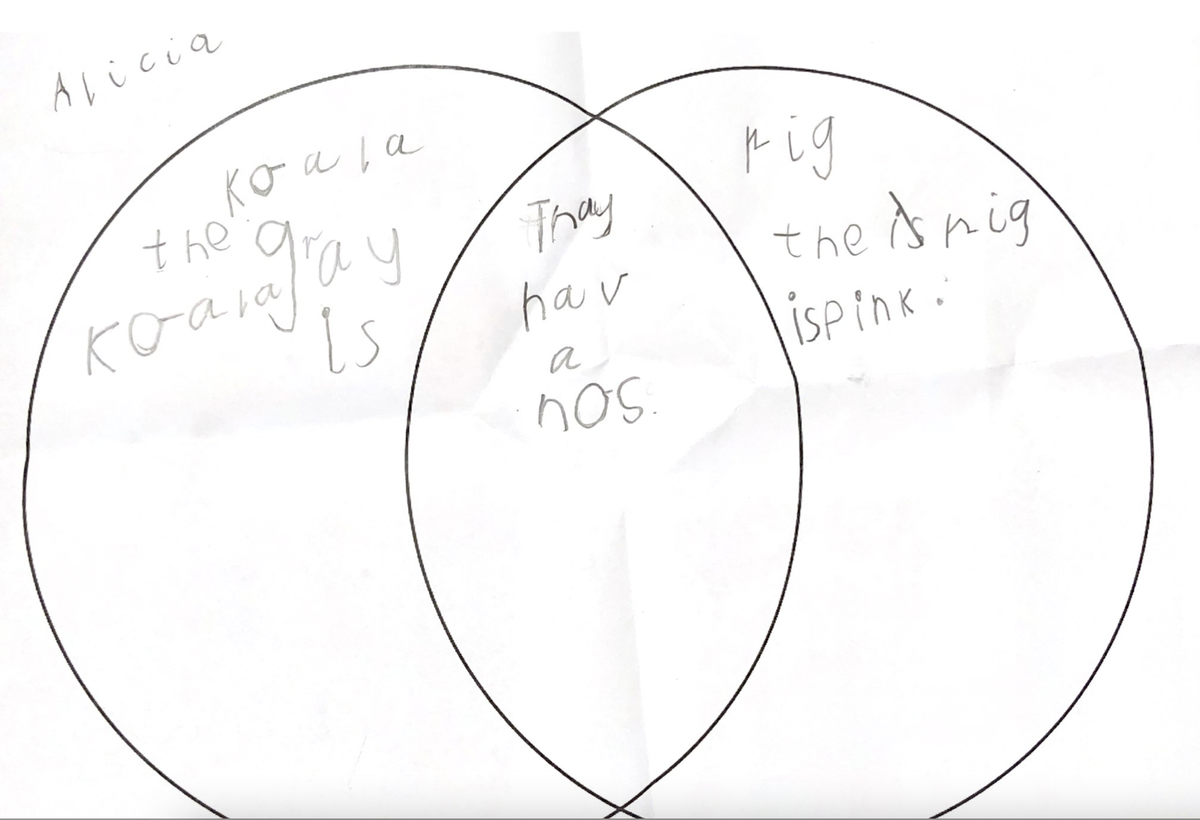 Alicia
koala
the gray
koala is
Thay
hav
a
nos.
pig
the is pig
ispink.